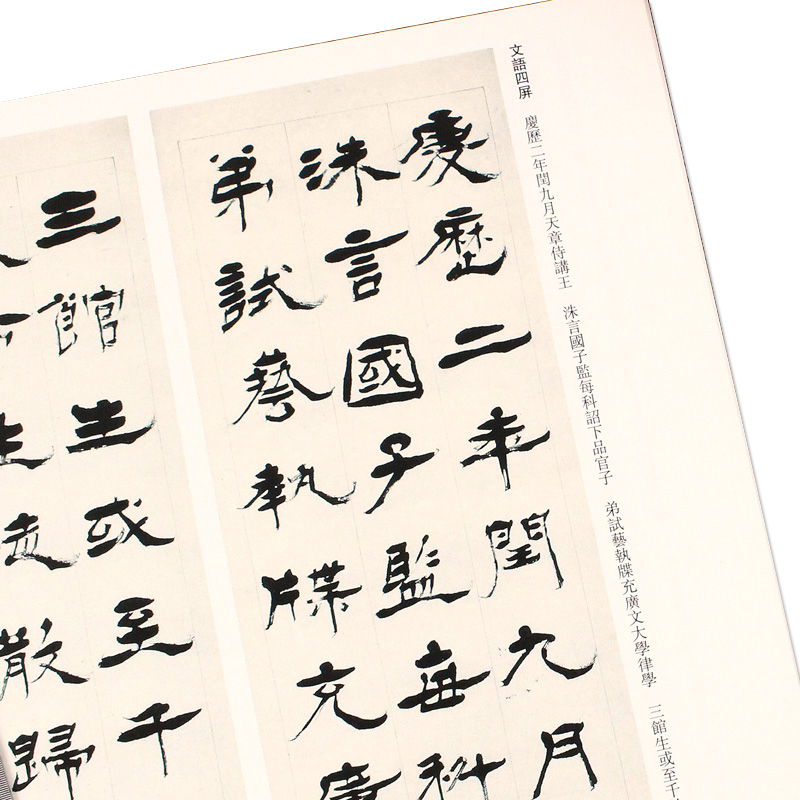 文語四屏 慶歷二年閏九月天章侍講王 洙言國子監每科詔下品官子 弟試藝執牒充廣文大學律學 三館生或至千
慶歷二年閏九月
洙言國子監每科
弟試藝執牒充廣
三館生或至千
生徒散歸